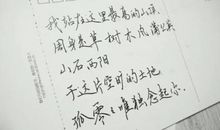 我站在这里最高的山顶
周身是草树木瓜蒲公英
山石西阳
于这片空旷的土地
孤零零唯独念起你.